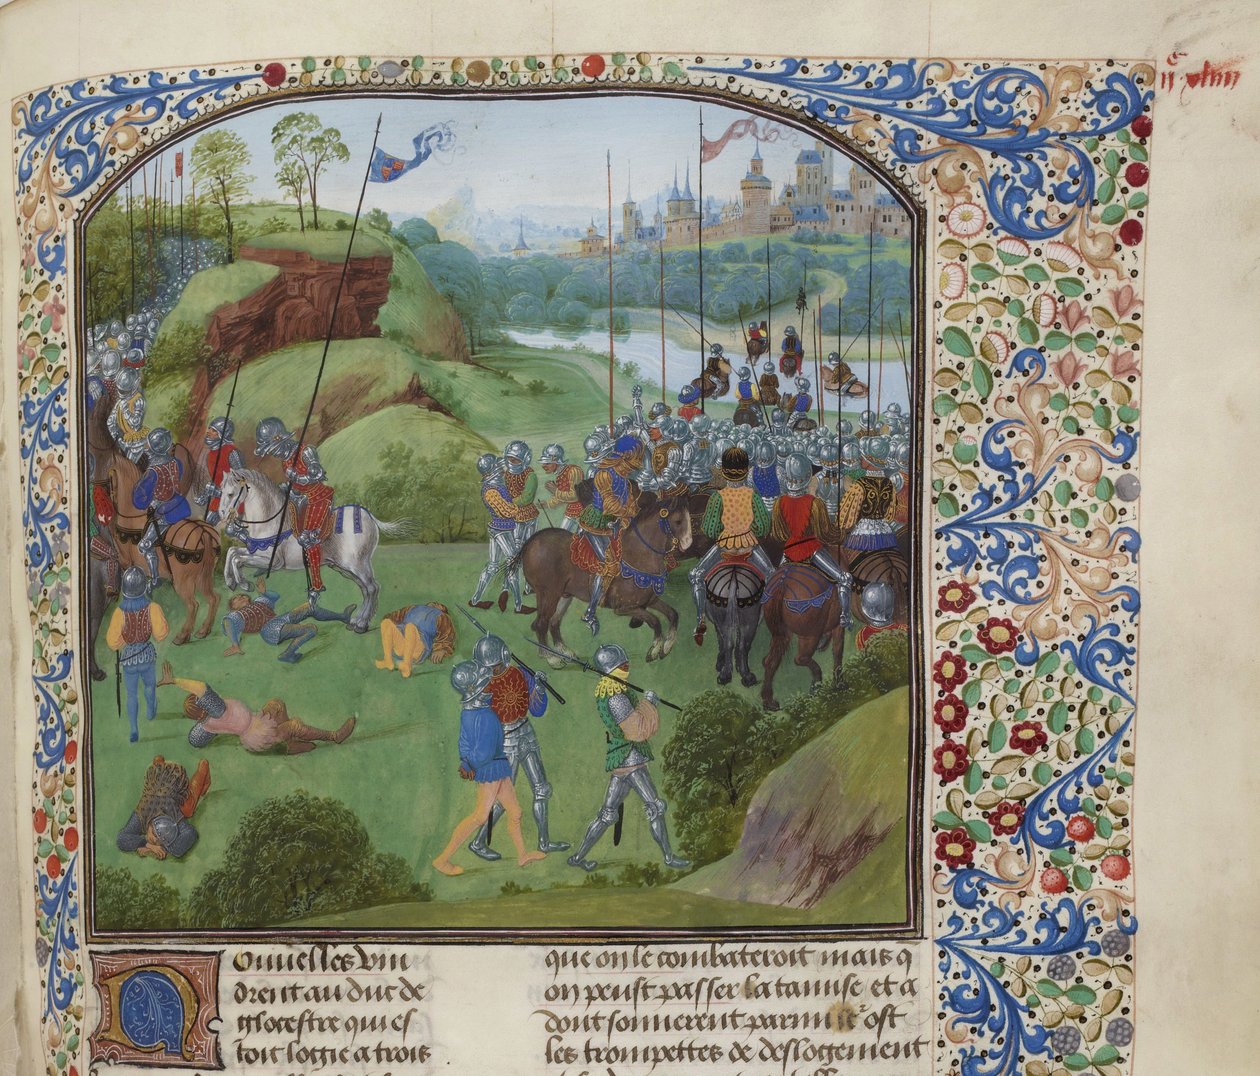 Nouuelles vin
drent au duc de
glocestre qui es
toit logie a trois
que on le combateroit mais q
on peust passer la tamise et a
dont sonnerent parmi lost
les trompettes de deslogement